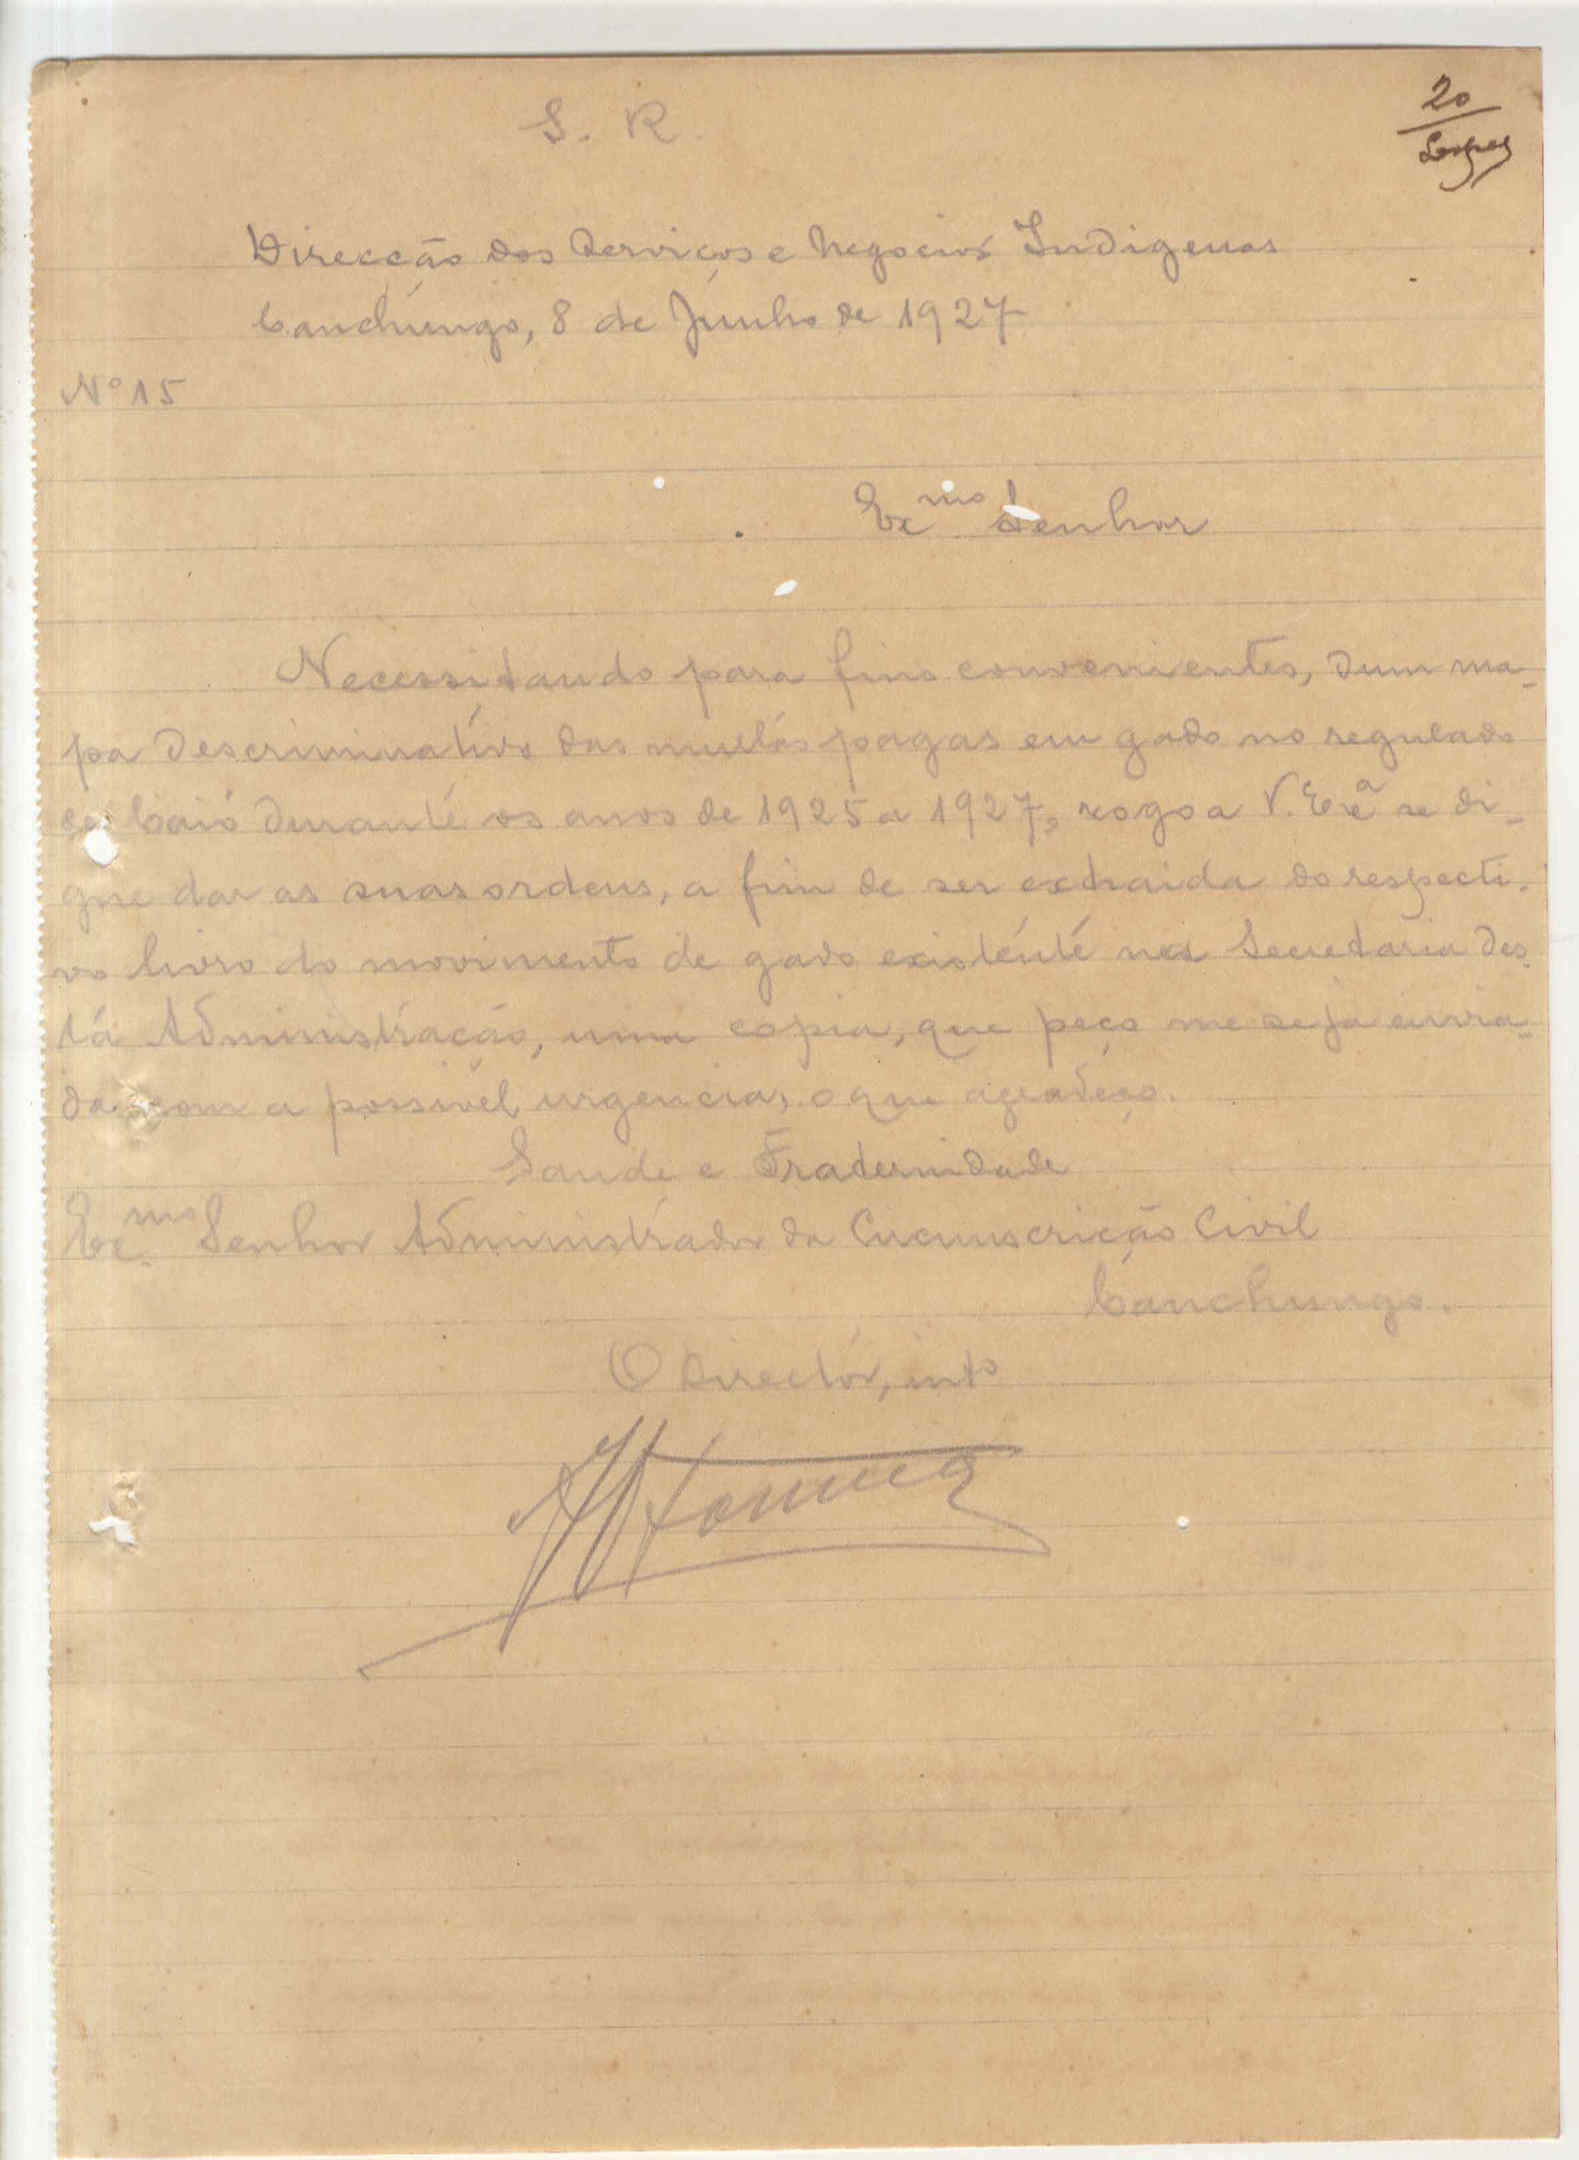 20
Lopes
S. R.
Direcção dos Serviços e Negocios Indigenas
Canchungo, 8 de Junho de 1927
Nº 15
Exmo Senhor
Necessitando para fins convenientes, dum ma-
pa descriminativo das multas pagas em gado no regulado
de Caió durante os anos de 1925 a 1927, rogo a V. Exª se di-
gne dar as suas ordens, a fim de ser extraida do respecti-
vo livro do movimento de gado existente na Secretaria des-
ta Administração, uma copia, que peço me seja envia-
da com a possivel urgencia, o que agradeço.
Saude e Fraternidade
Exmo. Senhor Administrador da Circunscrição Civil
Canchungo.
O Director, intº